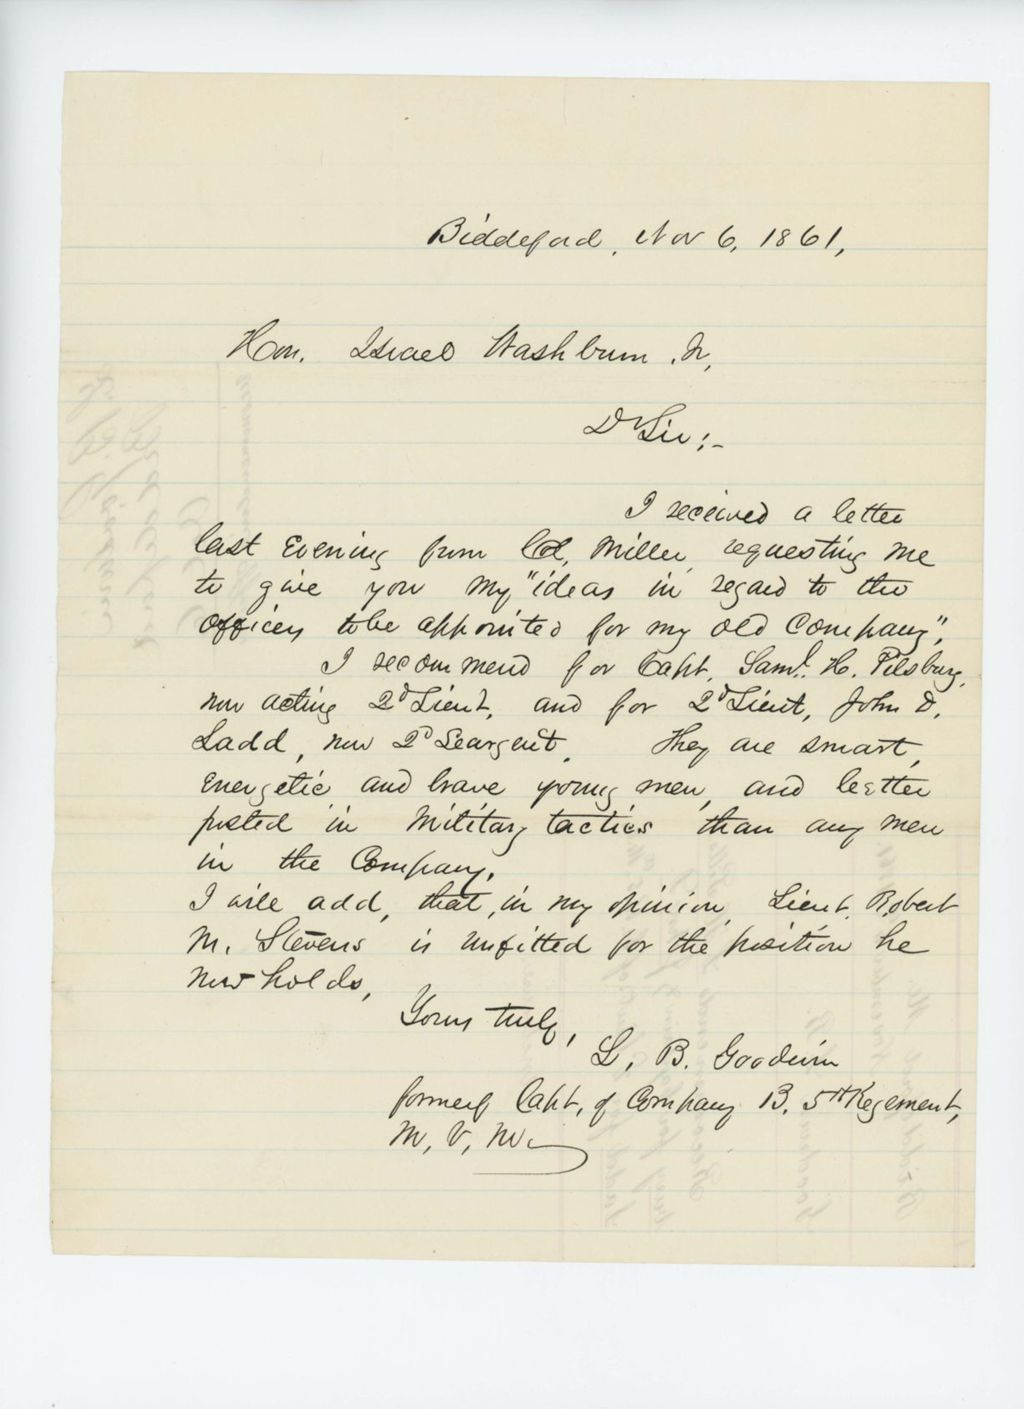 Biddeford, Nov 6, 1861,
Hon. Israel Washburn Jr,
D Sir:-
I received a letter
last Evening from Col, Miller, requesting me
to give you my "ideas in regard to the
officers tobe appointed for my old Company",
I recommend for Capt, Saml. H. Pilsbury,
now acting 2d Lieut, and for 2d Lieut, John D,
Ladd, now 2d Seargent, They are smart,
energetic and brave young men, and better
posted in Military tactics than any men
in the Company,
I will add, that, in my opinion, Lieut, Robert
M, Stevens is unfitted for the position he
now holds,
Yours truly,
L, B. Goodwin
formerly Capt, of Company B, 5th Regement,
M, V, M.